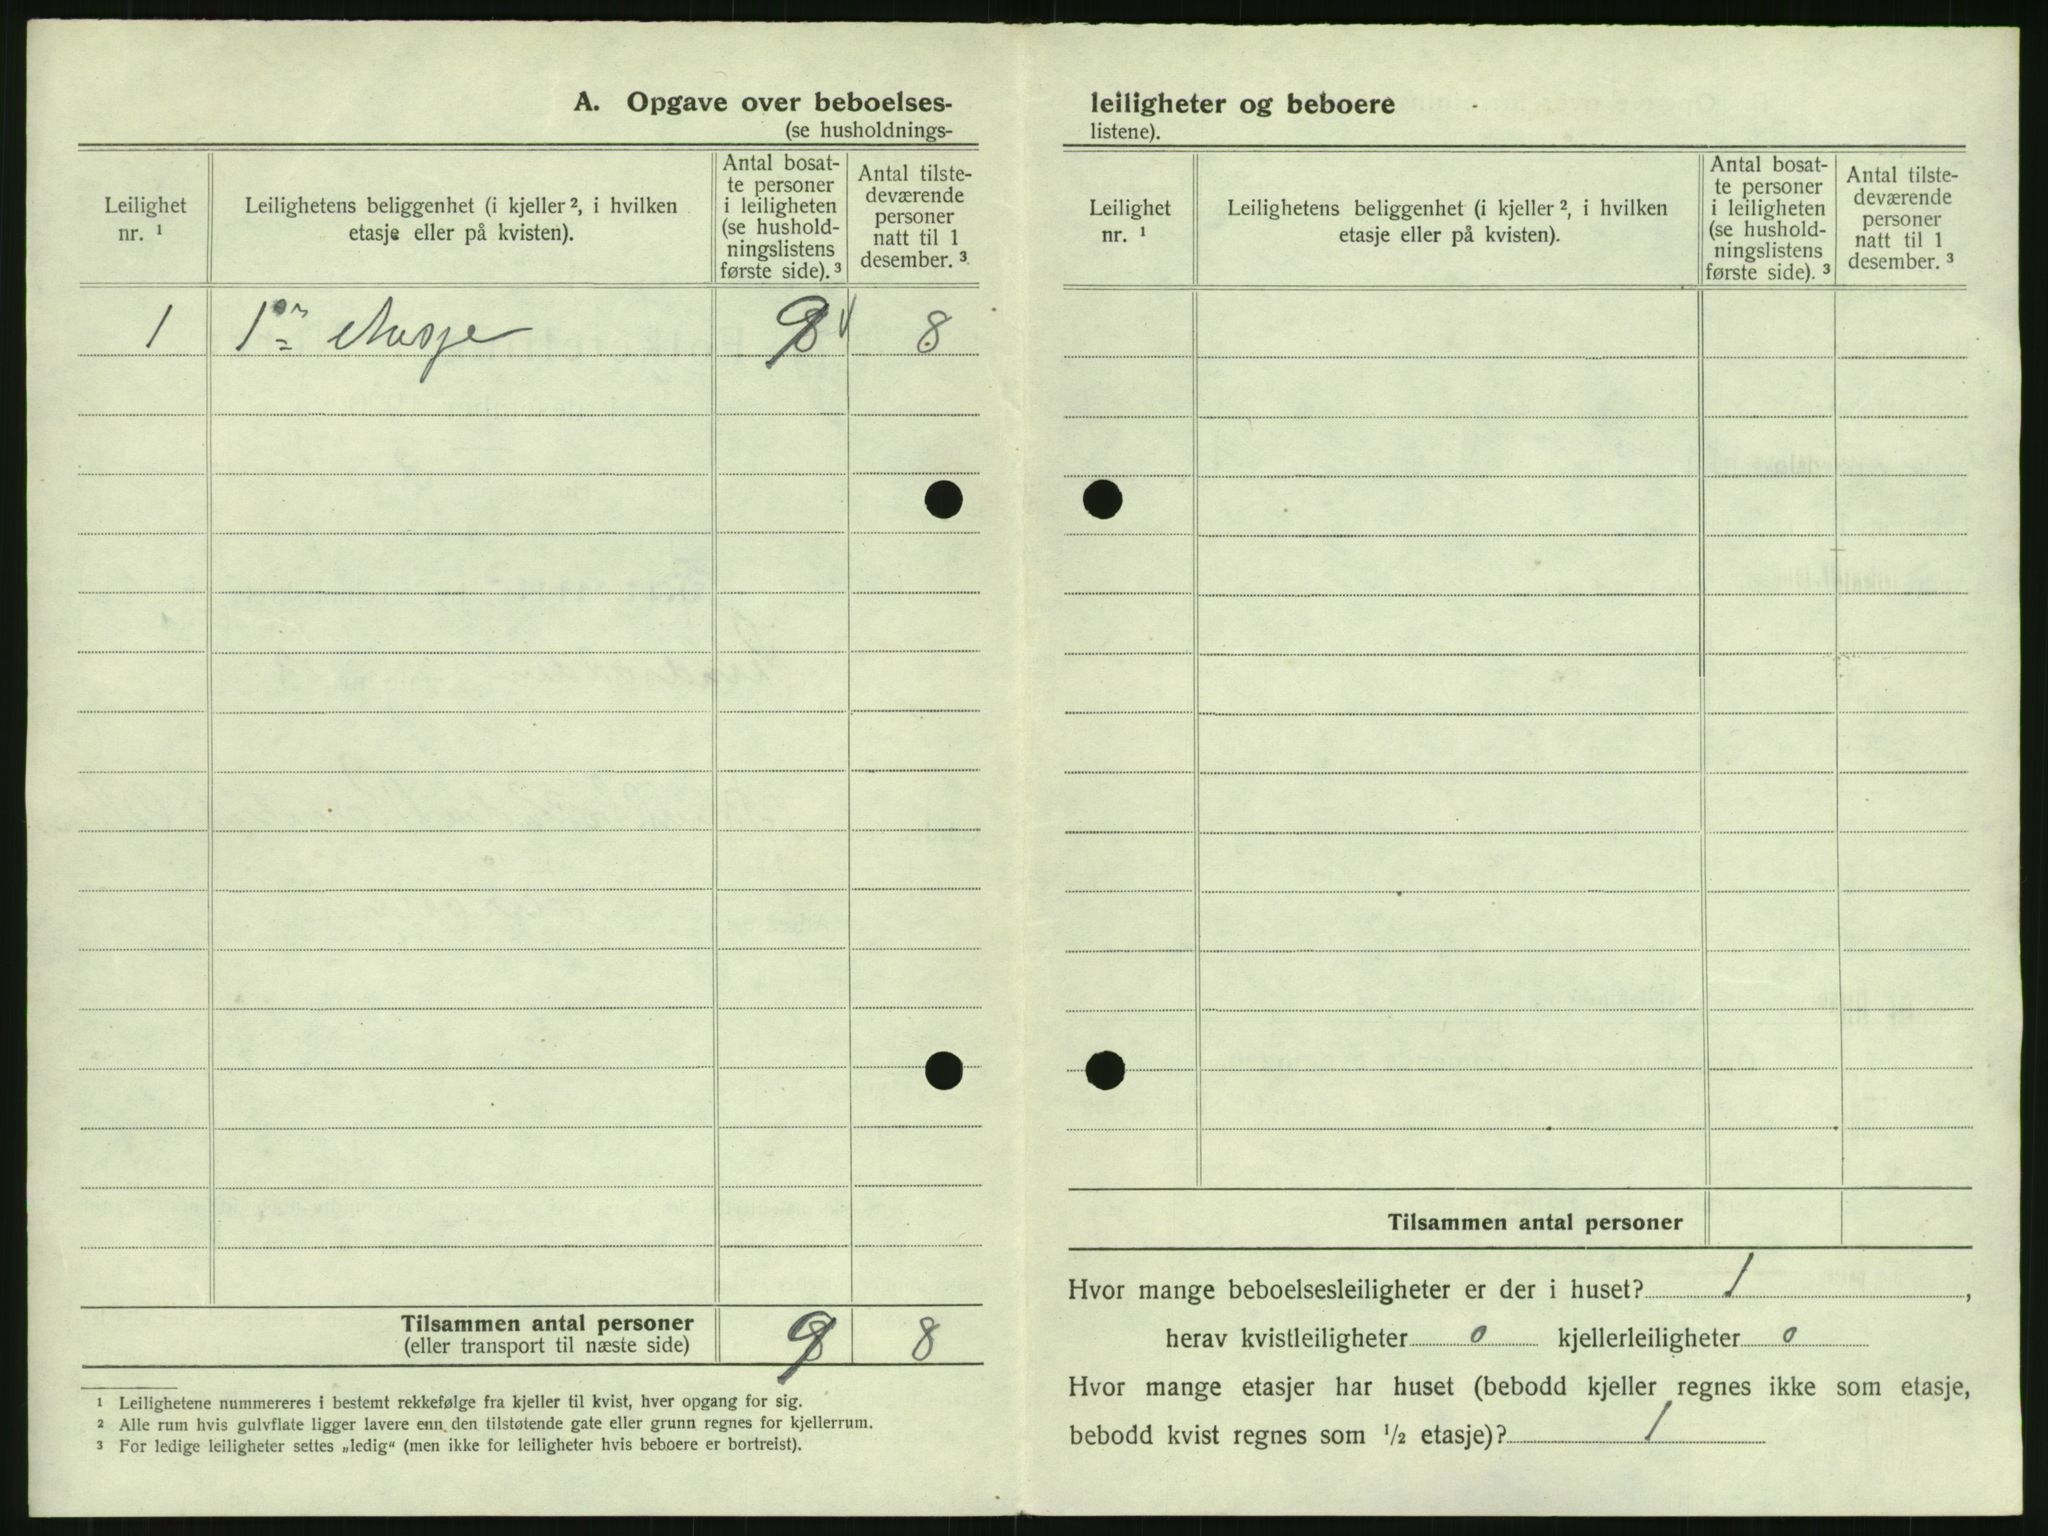 A. Opgave over beboelses-
(se husholdnings-
Leilighet
nr. ¹
Leilighetens beliggenhet (i kjeller ², i hvilken
etasje eller på kvisten).
Antal bosat-
te personer
i leiligheten
(se hushold-
ningslistens
første side). ³
Antal tilste-
deværende
personer
natt til 1
desember. ³
1 1ste etasje 9 8
Tilsammen antal personer 9 8
(eller transport til næste side)
¹ Leilighetene nummereres i bestemt rekkefølge fra kjeller til kvist, hver opgang for sig.
² Alle rum hvis gulvflate ligger lavere enn den tilstøtende gate eller grunn regnes for kjellerrum.
³ For ledige leiligheter settes „ledig“ (men ikke for leiligheter hvis beboere er bortreist).
leiligheter og beboere
listene).
Leilighet
nr. ¹
Leilighetens beliggenhet (i kjeller ², i hvilken
etasje eller på kvisten).
Antal bosat-
te personer
i leiligheten
(se hushold-
ningslistens
første side). ³
Antal tilste-
deværende
personer
natt til 1
desember. ³
Tilsammen antal personer
Hvor mange beboelsesleiligheter er der i huset? 1 ,
herav kvistleiligheter 0 kjellerleiligheter 0
Hvor mange etasjer har huset (bebodd kjeller regnes ikke som etasje,
bebodd kvist regnes som ½ etasje)? 1